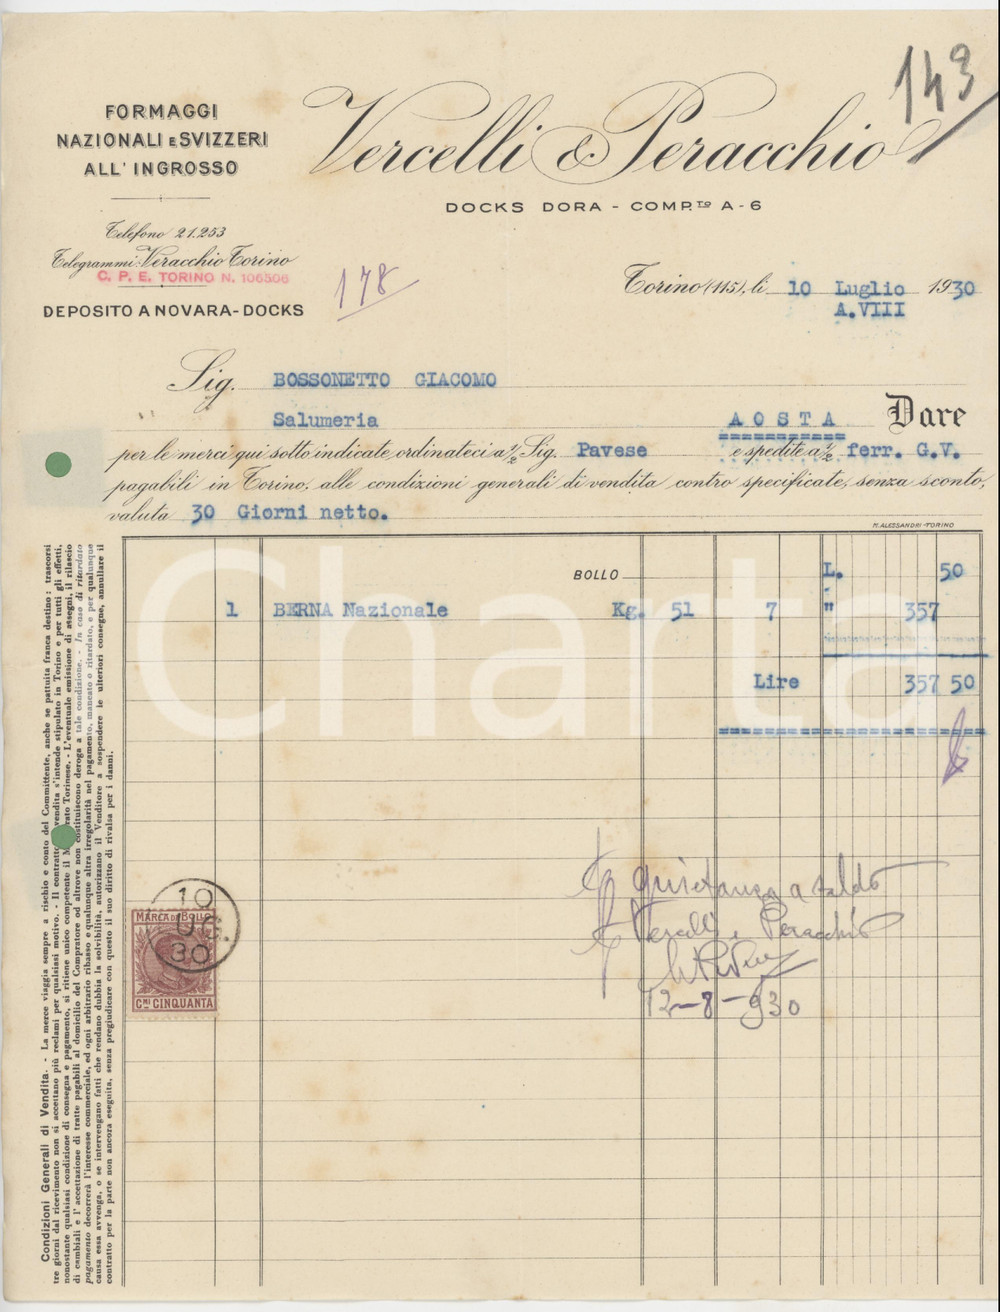 143
FORMAGGI
NAZIONALI E SVIZZERI
ALL' INGROSSO
Vercelli & Peracchio
DOCKS DORA - COMP.TO A-6
Telefono 21.253
Telegrammi: Veracchio Torino
C. P. E. TORINO N. 106506
DEPOSITO A NOVARA-DOCKS
178
Torino (115), li 10 Luglio 1930
A.VIII
Sig. BOSSONETTO GIACOMO
Salumeria A O S T A Dare
per le merci qui sotto indicate ordinateci a ½ Sig. Pavese e spedite a ½ ferr. G.V.
pagabili in Torino, alle condizioni generali di vendita contro specificate, senza sconto,
valuta 30 Giorni netto.
M. ALESSANDRI-TORINO
BOLLO L. 50
1 BERNA Nazionale Kg. 51 7 " 357
Lire 357 50
Charta
quietanza a saldo
Vercelli e Peracchio
12-8-930
10
30
MARCA DA BOLLO
CMI CINQUANTA
Condizioni Generali di Vendita. - La merce viaggia sempre a rischio e conto del Committente, anche se pattuita franca destino: trascorsi
tre giorni dal ricevimento non si accettano più reclami per qualsiasi motivo. - Il contratto vendita s'intende stipulato in Torino e per tutti gli effetti,
nonostante qualsiasi condizione di consegna e pagamento, si ritiene unico competente il Torinese. - L'eventuale emissione di assegni, il rilascio
di cambiali e l'accettazione di tratte pagabili al domicilio del Compratore od altrove non costituiscono deroga a tale condizione. - In caso di ritardato
pagamento decorrerà l'interesse commerciale, ed ogni arbitrario ribasso e qualunque altra irregolarità nel pagamento, mancato o ritardato, e per qualunque
causa essa avvenga, o se intervengano fatti che rendano dubbia la solvibilità, autorizzano il Venditore a sospendere le ulteriori consegne, annullare il
contratto per la parte non ancora eseguita, senza pregiudicare con questo il suo diritto di rivalsa per i danni.